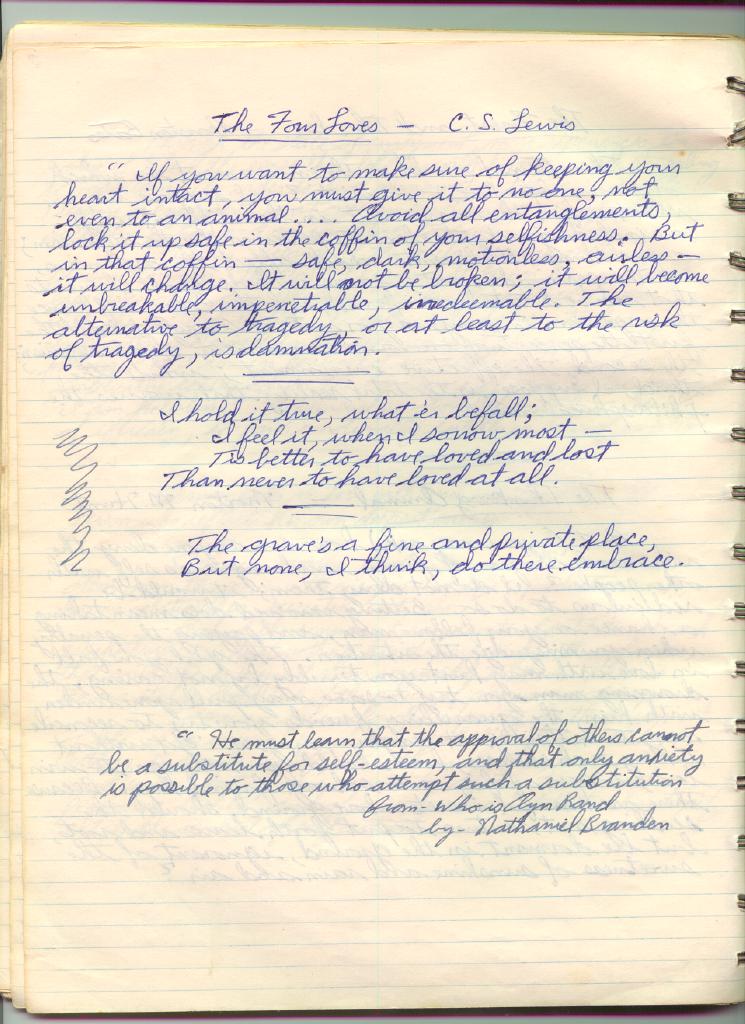 The Four Loves — C. S. Lewis
" If you want to make sure of keeping your
heart intact, you must give it to no one, not
even to an animal.... Avoid all entanglements,
lock it up safe in the coffin of your selfishness. But
in that coffin — safe, dark, motionless, airless —
it will change. It will not be broken; it will become
unbreakable, impenetrable, irredeemable. The
alternative to tragedy, or at least to the risk
of tragedy, is damnation.
I hold it true, what 'er befall;
I feel it, when I sorrow most —
Tis better to have loved and lost
Than never to have loved at all.
The grave's a fine and private place,
But none, I think, do there embrace.
" He must learn that the approval of others cannot
be a substitute for self-esteem, and that only anxiety
is possible to those who attempt such a substitution
from - Who is Ayn Rand
by - Nathaniel Branden